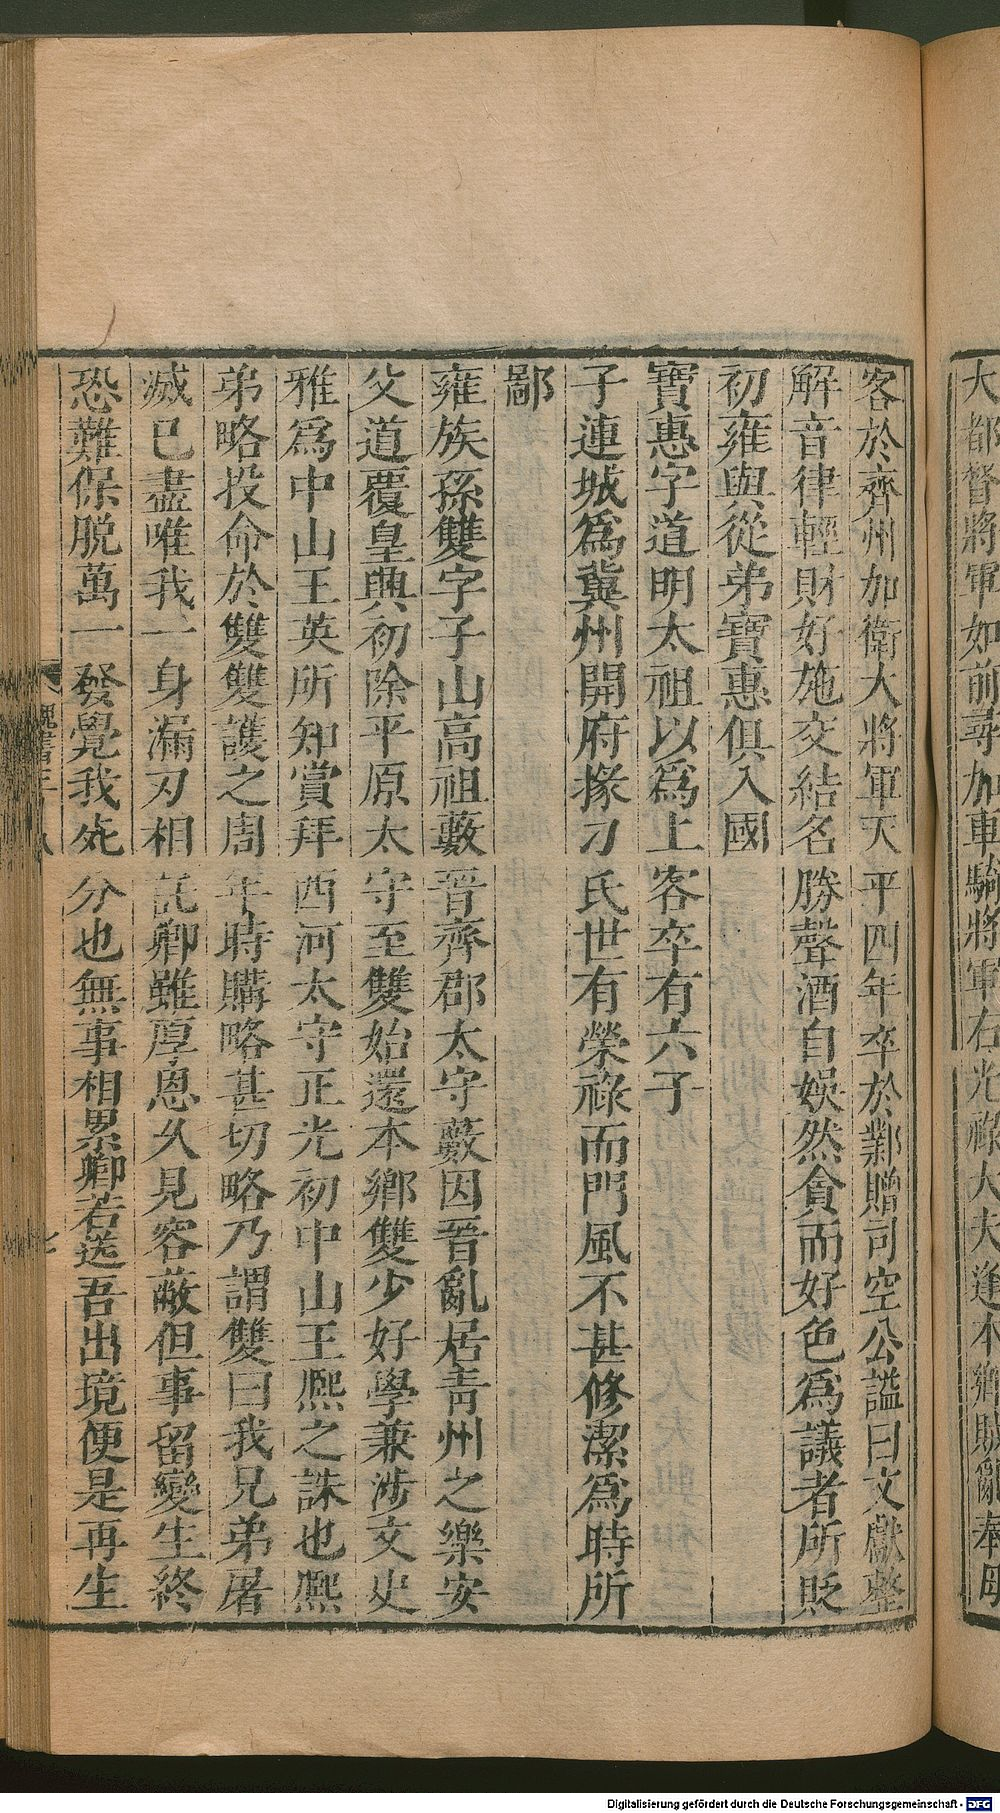 大都督將軍如前尋加車騎將軍右光祿大夫逢本鄉賊亂奉母
客於齊州加衛大將軍天平四年卒於鄴贈司空公謚曰文獻整
解音律輕財好施交結名勝聲酒自娛然貪而好色爲議者所貶
初雍與從弟寶惠俱入國
寶惠字道明太祖以爲上客卒有六子
子連城爲冀州開府掾刁氏世有榮祿而門風不甚修潔爲時所
鄙
雍族孫雙字子山高祖藪晉齊郡太守藪因晉亂居青州之樂安
父道覆皇興初除平原太守至雙始還本鄉雙少好學兼涉文史
雅爲中山王英所知賞拜西河太守正光初中山王熈之誅也熈
弟略投命於雙雙護之周年時購略甚切略乃謂雙曰我兄弟屠
滅已盡唯我一身漏刃相託卿雖厚恩久見容蔽但事留變生終
恐難保脫萬一發覺我死分也無事相累卿若送吾出境便是再生
魏書三十八
七
Digitalisierung gefördert durch die Deutsche Forschungsgemeinschaft - DFG